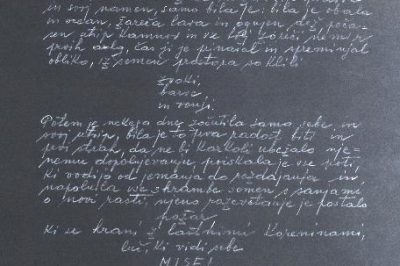 in svoj namen, samo bila je: bila je obala
in ocean, žareča lava in ognjen dež, počas
en utrip kamnov in vse bolj
prvih, čas ji je prinašal in spreminjal
obliko, iz semen prostora so klili
zvoki,
barve
in vonji.
Potem je nekega dne začutila samo sebe in
svoj utrip, bila je to prva radost biti in
prvi strah, da ne bi karkoli ubežalo nje=
nemu dopolnjevanju, preiskala je vse poti,
ki vodijo od jemanja do razdajanja in
napolnila vse shrambe semen s sanjami
o novi rasti, njeno razcvetanje je postalo
požar
ki se hrani z lastnimi koreninami,
luč, ki vidi sebe
MISEL